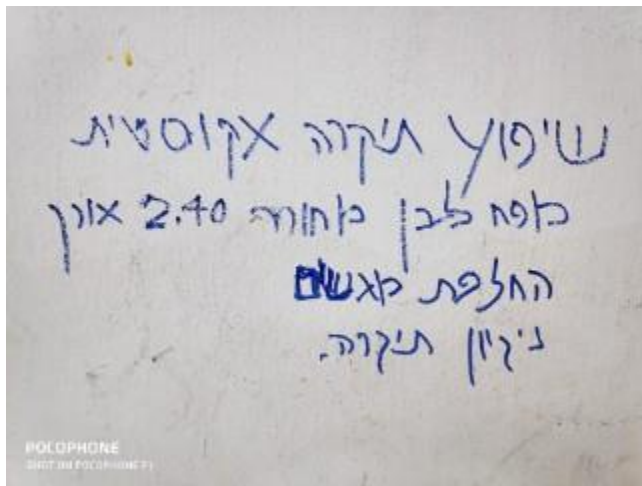 שיפוץ תיקרה אקוסטית
מפח לבן מחורר 2.40 אורך
החלפת מגשים
ניקיון תיקרה.
POCOPHONE
SHOT ON POCOPHONE F1